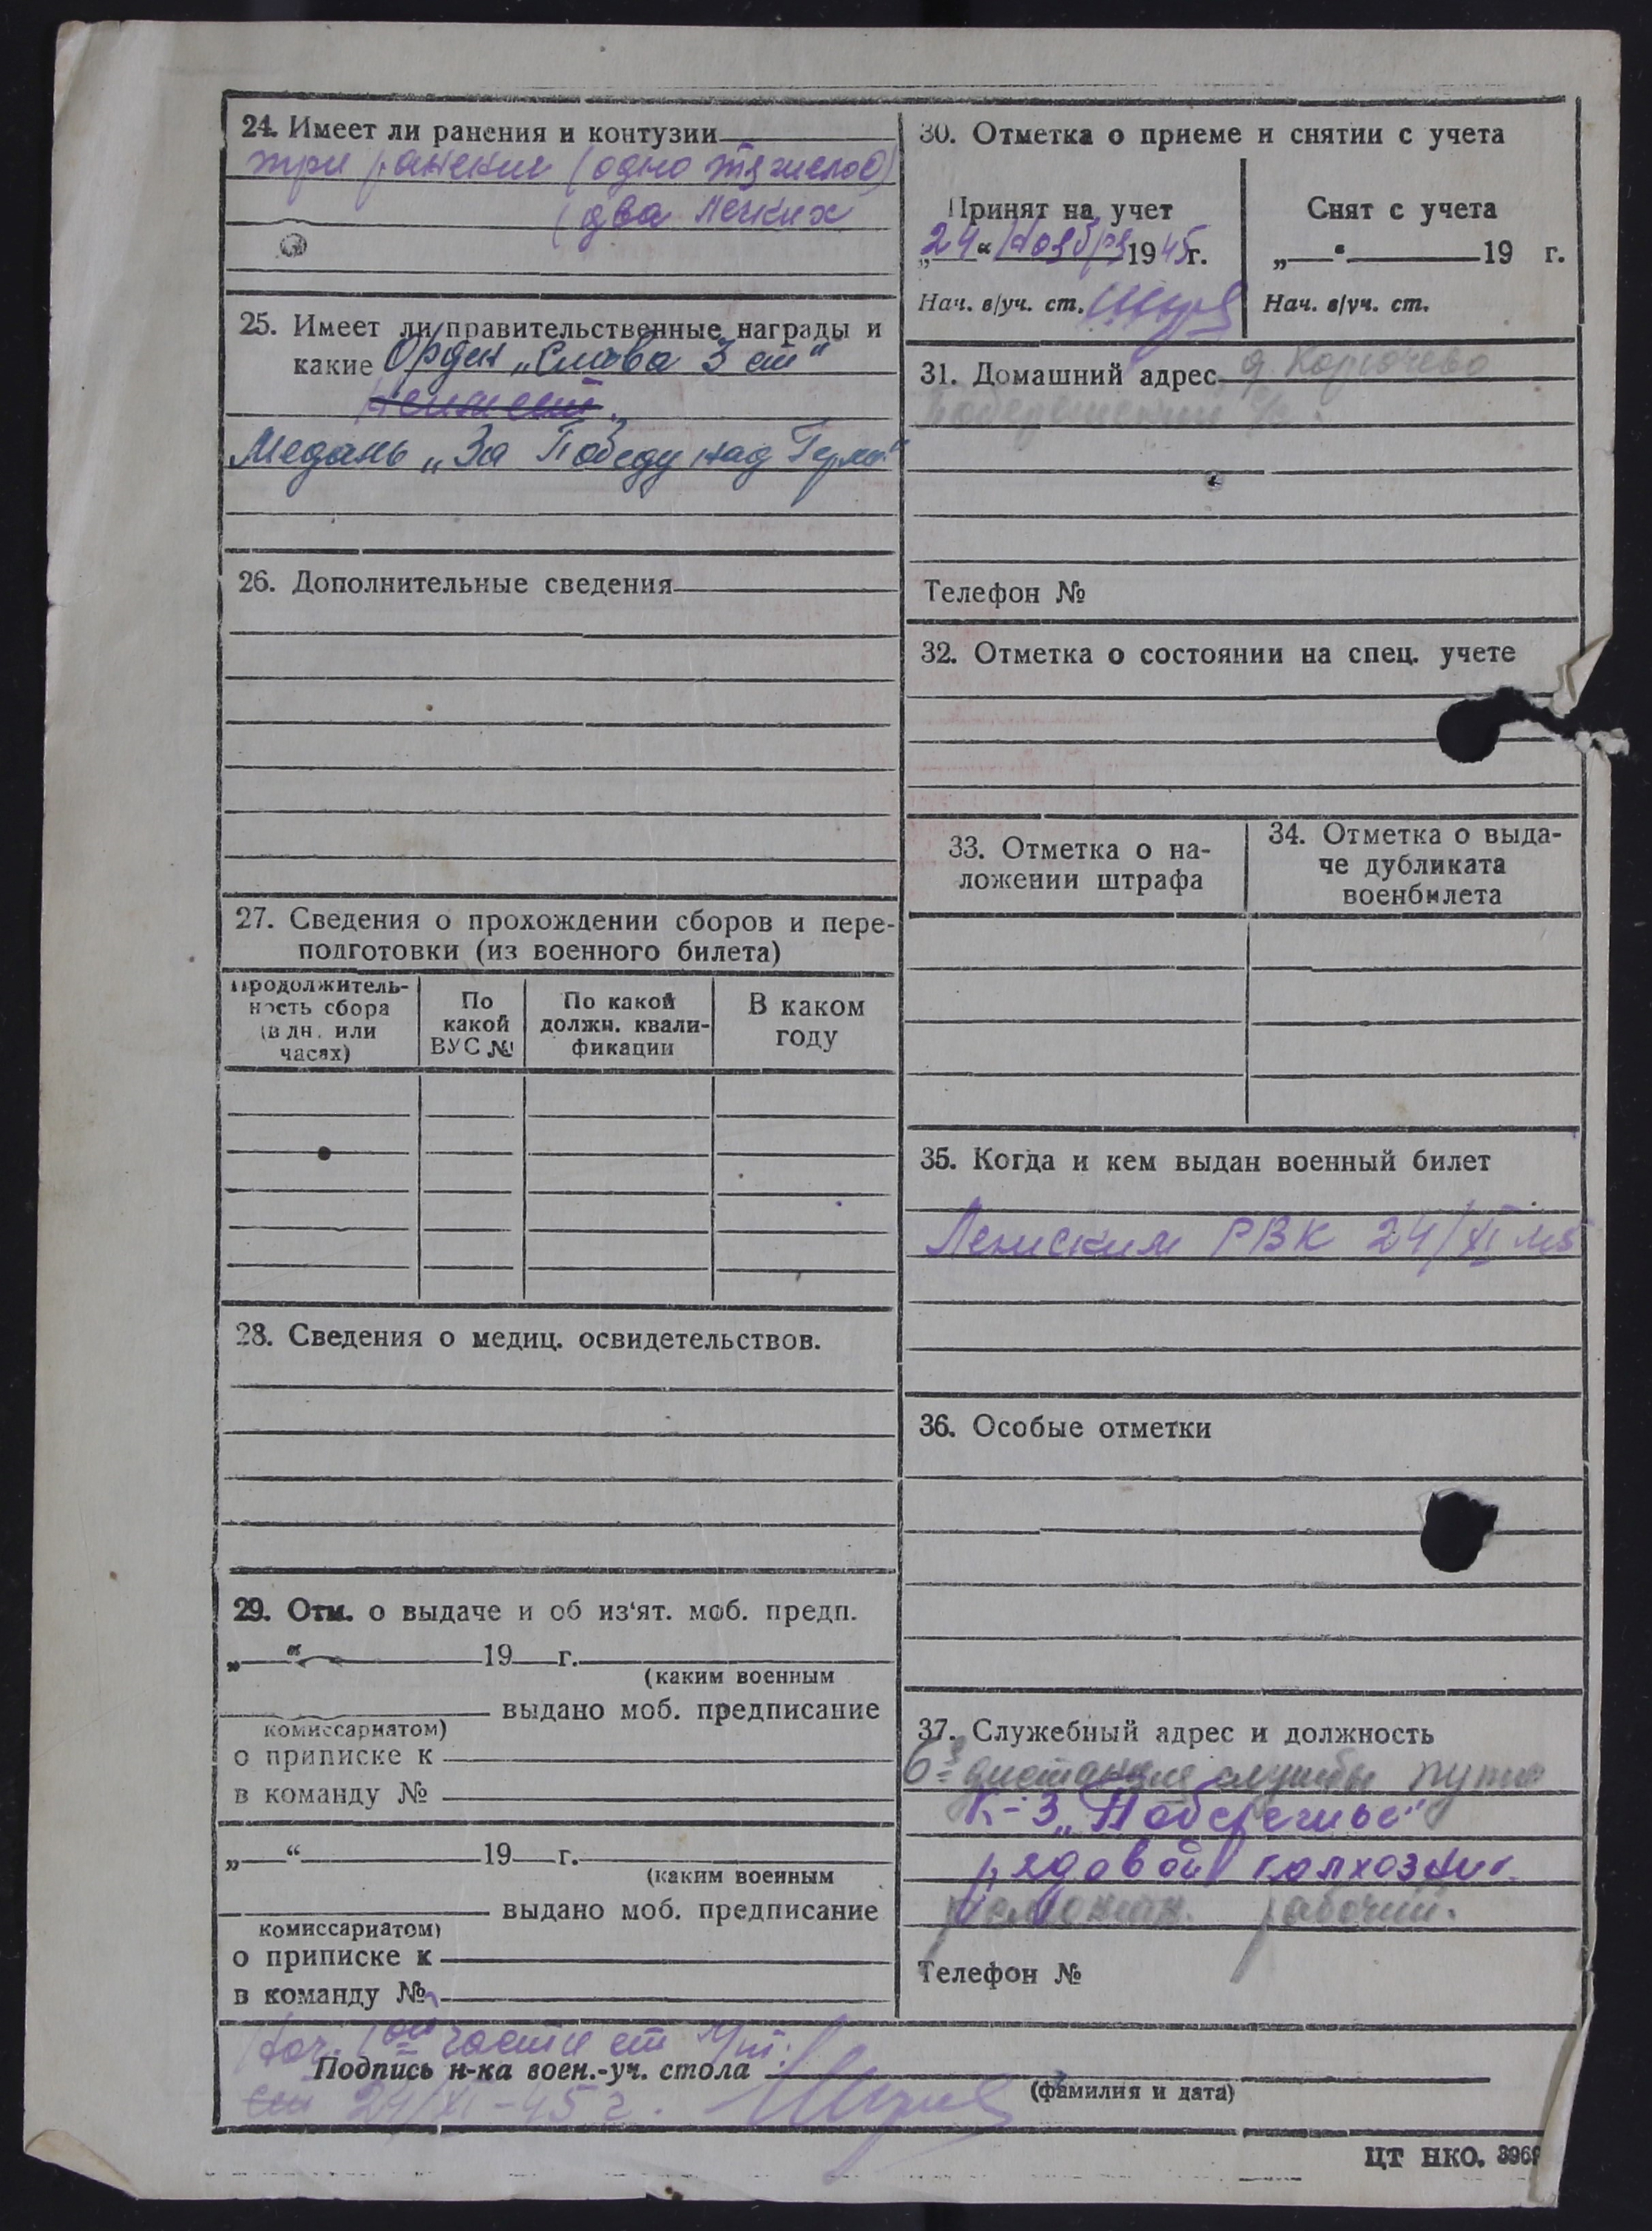 24. Имеет ли ранения и контузии
три ранения (одно тяжелое)
(два легких
25. Имеет ли правительственные награды и
какие Орден „Слава 3 ст“
Медаль „За Победу над Герм.“
26. Дополнительные сведения
27. Сведения о прохождении сборов и пере-
подготовки (из военного билета)
Продолжитель-
ность сбора
(в дн. или
часах)
По
какой
ВУС №
По какой
должн. квали-
фикации
В каком
году
28. Сведения о медиц. освидетельствов.
29. Отм. о выдаче и об из‘ят. моб. предп.
„ “ 19 г.
(каким военным
выдано моб. предписание
комиссариатом)
о приписке к
в команду №
„ “ 19 г.
(каким военным
выдано моб. предписание
комиссариатом)
о приписке к
в команду №
30. Отметка о приеме и снятии с учета
Принят на учет
„24“ Ноября 1945г.
Нач. в/уч. ст.
Снят с учета
„ “ 19 г.
Нач. в/уч. ст.
31. Домашний адрес д. Корючево
Телефон №
32. Отметка о состоянии на спец. учете
33. Отметка о на-
ложении штрафа
34. Отметка о выда-
че дубликата
военбилета
35. Когда и кем выдан военный билет
Ленским РВК 24/XI 45
36. Особые отметки
37. Служебный адрес и должность
6-я дистанция службы пути
К-з „Побережье“
рядовой колхозник.
ремонтн. рабочий.
Телефон №
Нач. 1ой части ст
Подпись н-ка воен.-уч. стола
(фамилия и дата)
24/XI-45 г.
ЦТ НКО. 396